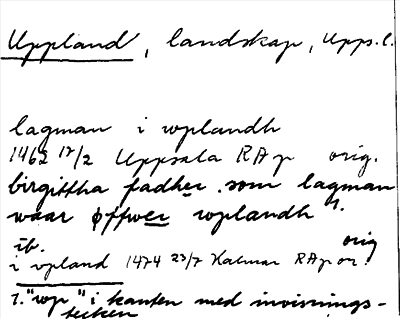 Uppland, landskap, Upps.l.
lagman i vplandh
1462 17/2 Uppsala RAp orig.
birgittha fadher som lagman
waar øffwer wplandh 1.
ib. orig
i vpland 1474 23/7 Kalmar RAp or.
1. "wp" i kanten med invisnings-
tecken